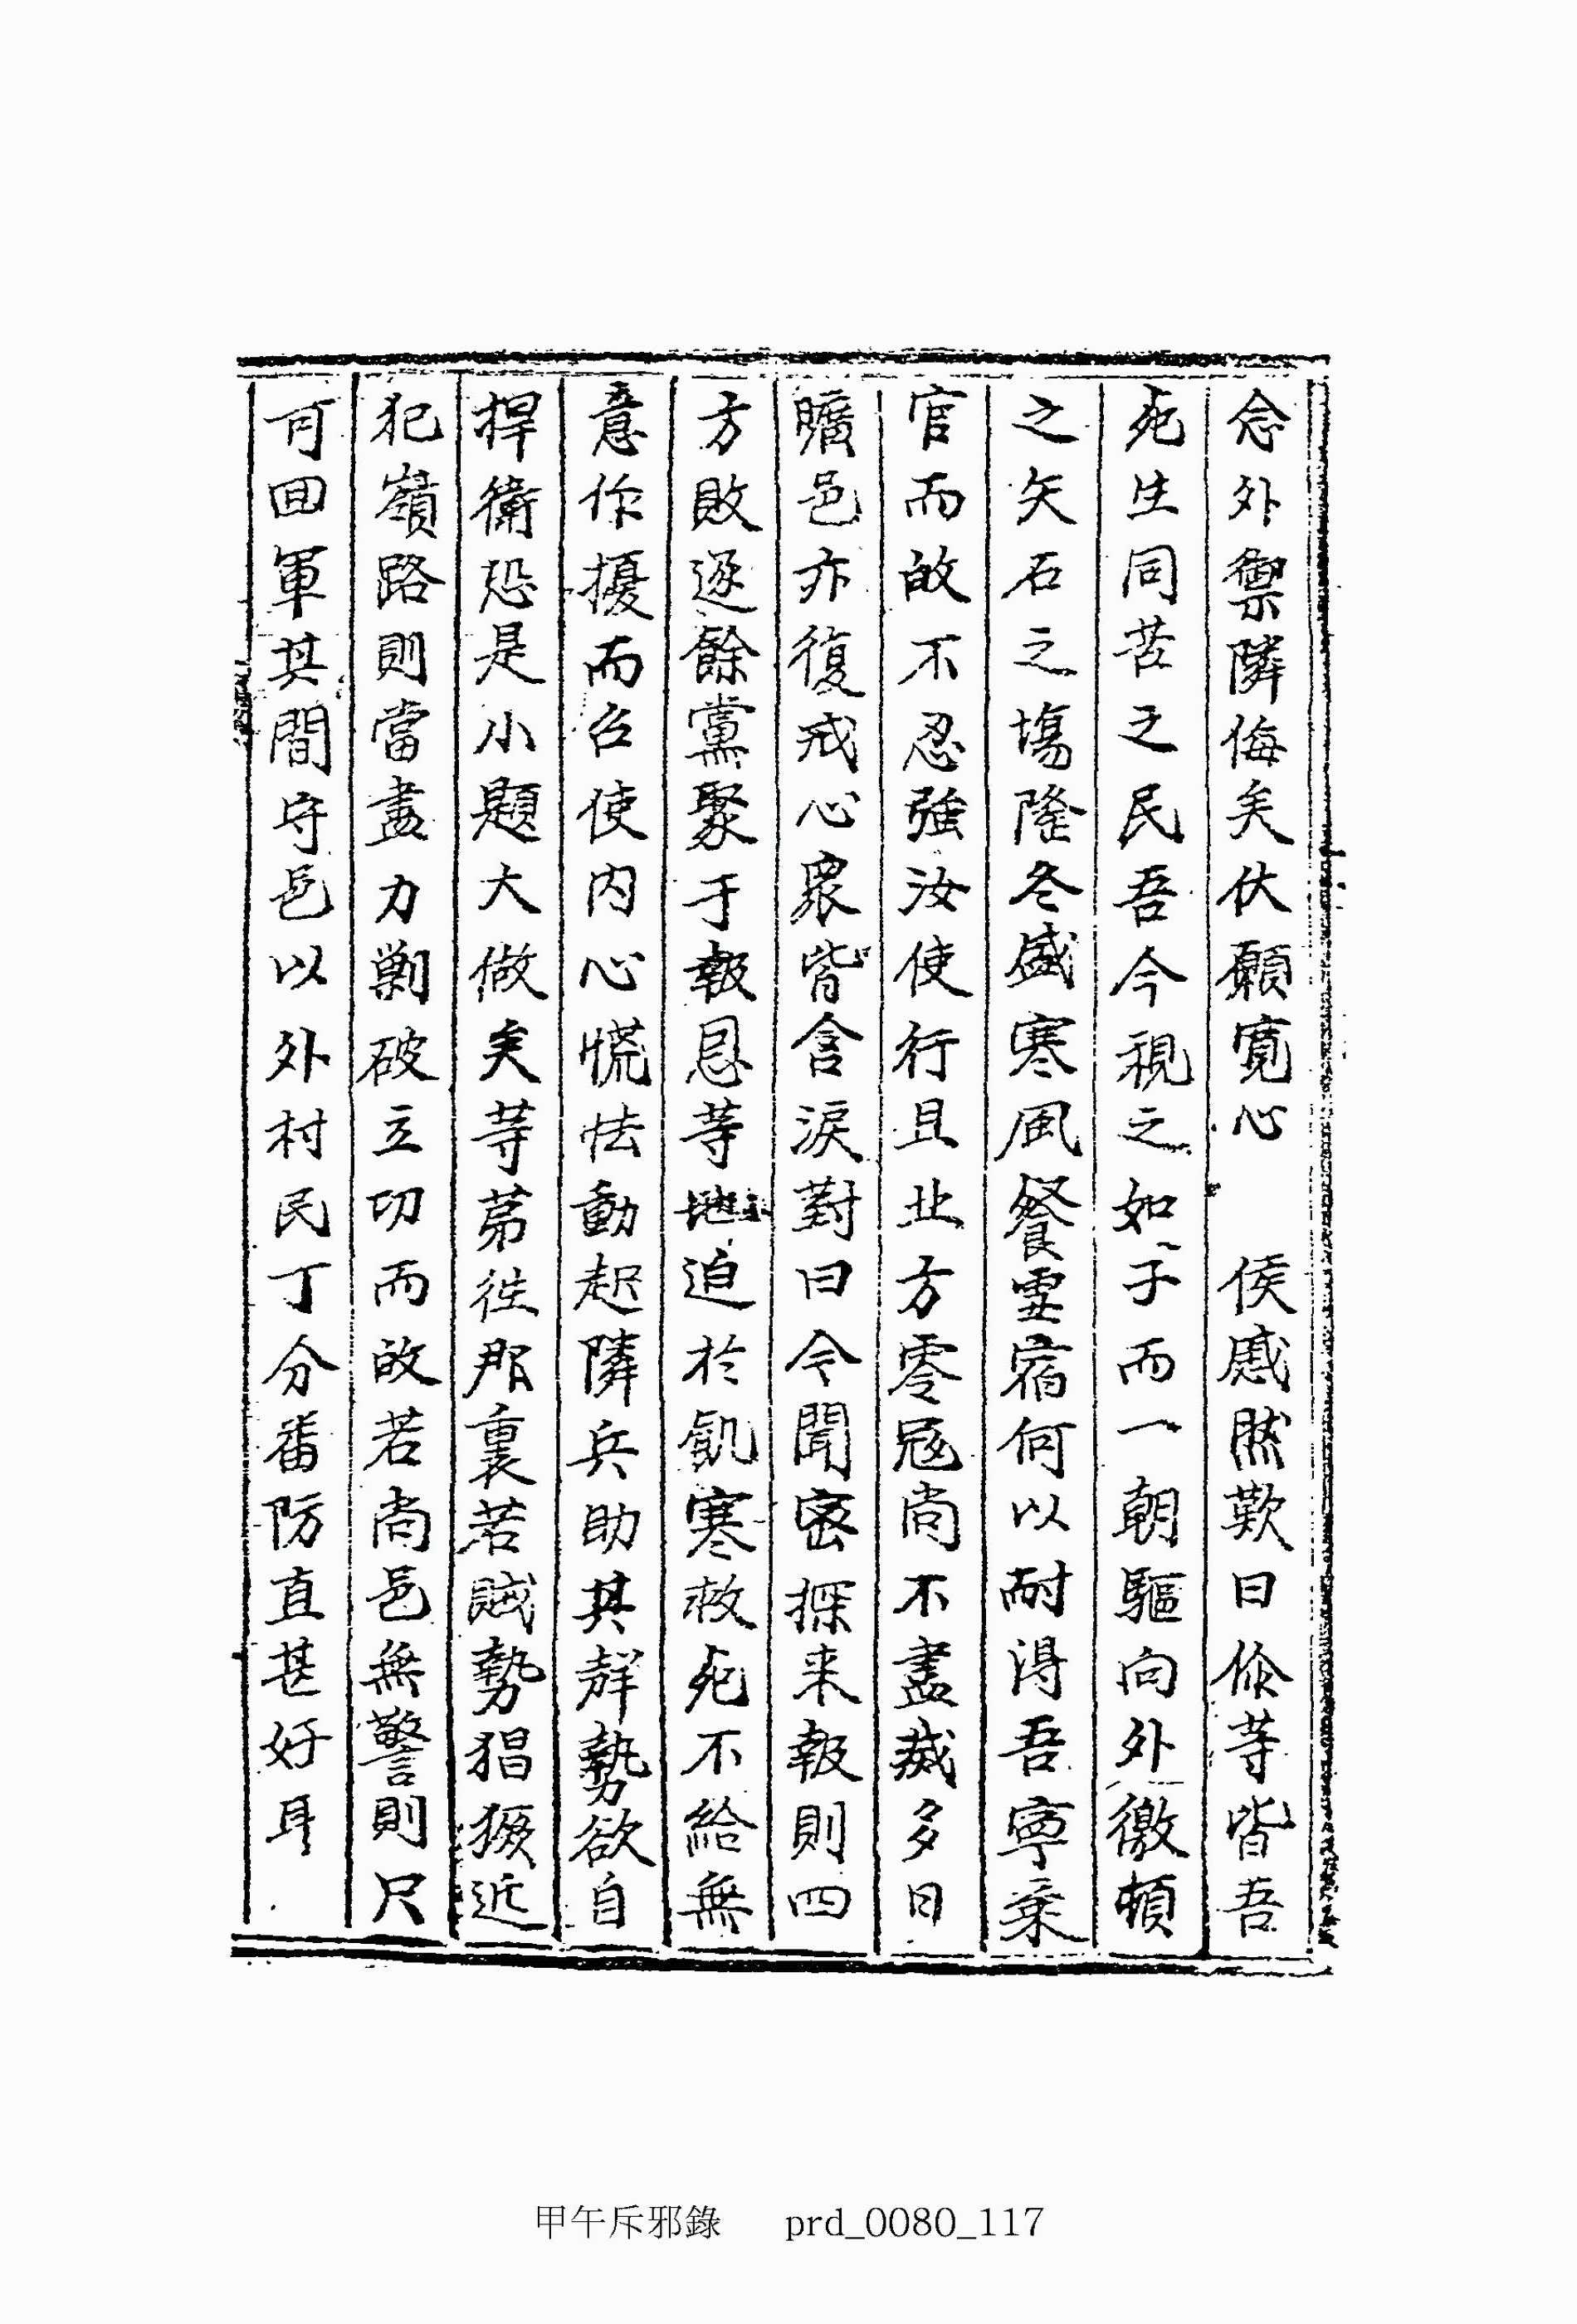 念外禦隣侮矣伏願寬心　侯慼然歎曰你等皆吾
死生同苦之民吾今視之如子而一朝驅向外徼頓
之矢石之場隆冬盛寒風餐雪宿何以耐得吾寧棄
官而故不忍強汝使行且北方零冦尚不盡滅多日
曠邑亦復戒心衆皆含淚對曰今聞密探来報則四
方敗逐餘黨聚于報恩等地迫於飢寒救死不給無
意作擾而召使内心慌怯動起隣兵助其聲勢欲自
捍衛恐是小題大做矣等苐徃那裏若賊勢猖獗近
犯嶺路則當盡力剿破立功而故若尚邑無警則尺
可回軍其間守邑以外村民丁分番防直甚好耳
甲午斥邪錄　prd_0080_117